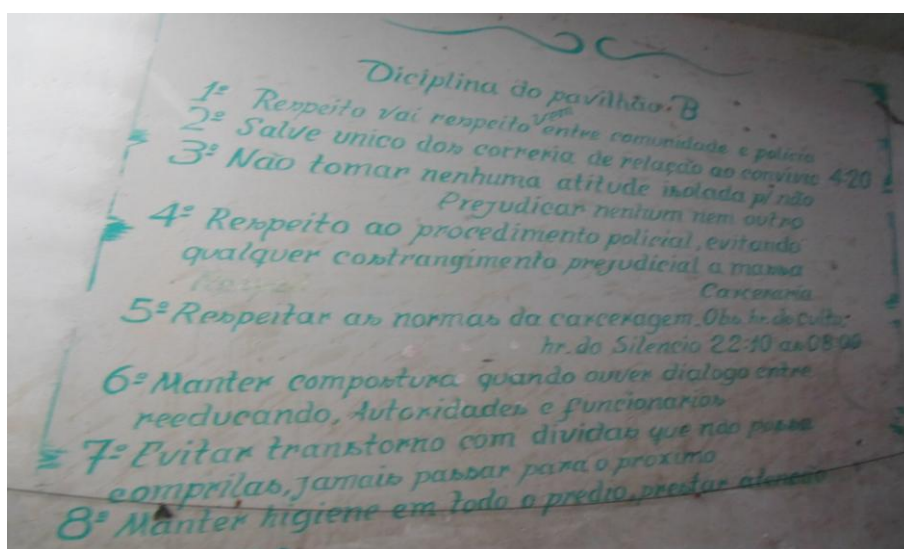 Diciplina do pavilhão: B
1º Respeito vai respeito vem entre comunidade e policia
2º Salve unico dos correria de relação ao convivio 4:20
3º Não tomar nenhuma atitude isolada p/ não
Prejudicar nenhum nem outro
4º Respeito ao procedimento policial, evitando
qualquer costrangimento prejudicial a massa
Carceraria
5º Respeitar as normas da carceragem. Obs hr. do Culto:
hr. do Silencio 22:10 as 08:00
6º Manter compostura quando ouver dialogo entre
reeducando, Autoridades e funcionarios
7º Evitar transtorno com dividas que não possa
comprilas, jamais passar para o proximo
8º Manter higiene em todo o predio, prestar atenção